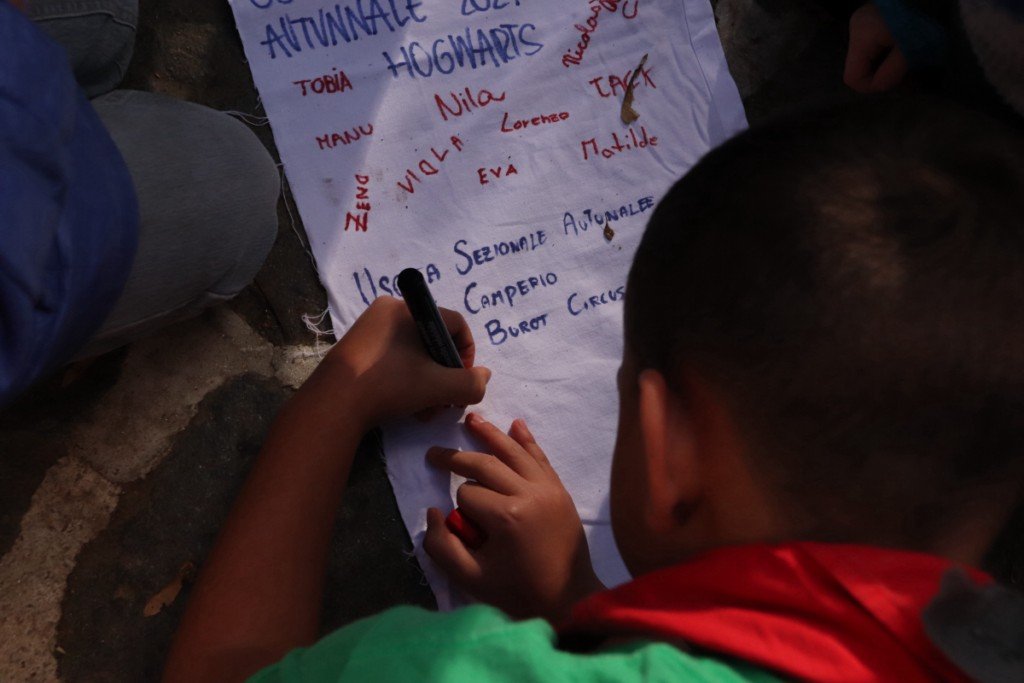 AUTUNNALE 2021
HOGWARTS
Nicolas
TOBIA
Nila
JACK
MANU
Lorenzo
VIOLA
Matilde
EVA
ZENO
SEZIONALE AUTUNALEE
CAMPERIO
BUROT CIRCUS